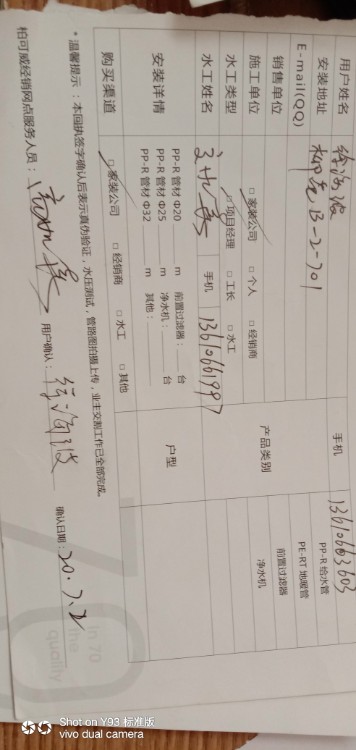 用户姓名 手机 13610663603
安装地址 B-2-701 PP-R 给水管
E-mail(QQ) PE-RT 地暖管
销售单位 产品类别 前置过滤器
施工单位 □ 家装公司 □ 个人 □ 经销商 净水机
水工类型 □ 项目经理 □ 工长 □ 水工
水工姓名 手机 13610661997
安装详情 PP-R 管材 Φ20 m 前置过滤器: 台 户型
PP-R 管材 Φ25 m 净水机: 台
PP-R 管材 Φ32 m 其他:
购买渠道 □ 家装公司 □ 经销商 □ 水工 □ 其他
* 温馨提示:本回执签字确认后表示真伪验证,水压测试,管路图拍摄上传,业主交割工作已全部完成。
柏可威经销网点服务人员: 用户确认: 确认日期: 20.7.2
In 70
me
quality
Shot on Y93 标准版
vivo dual camera